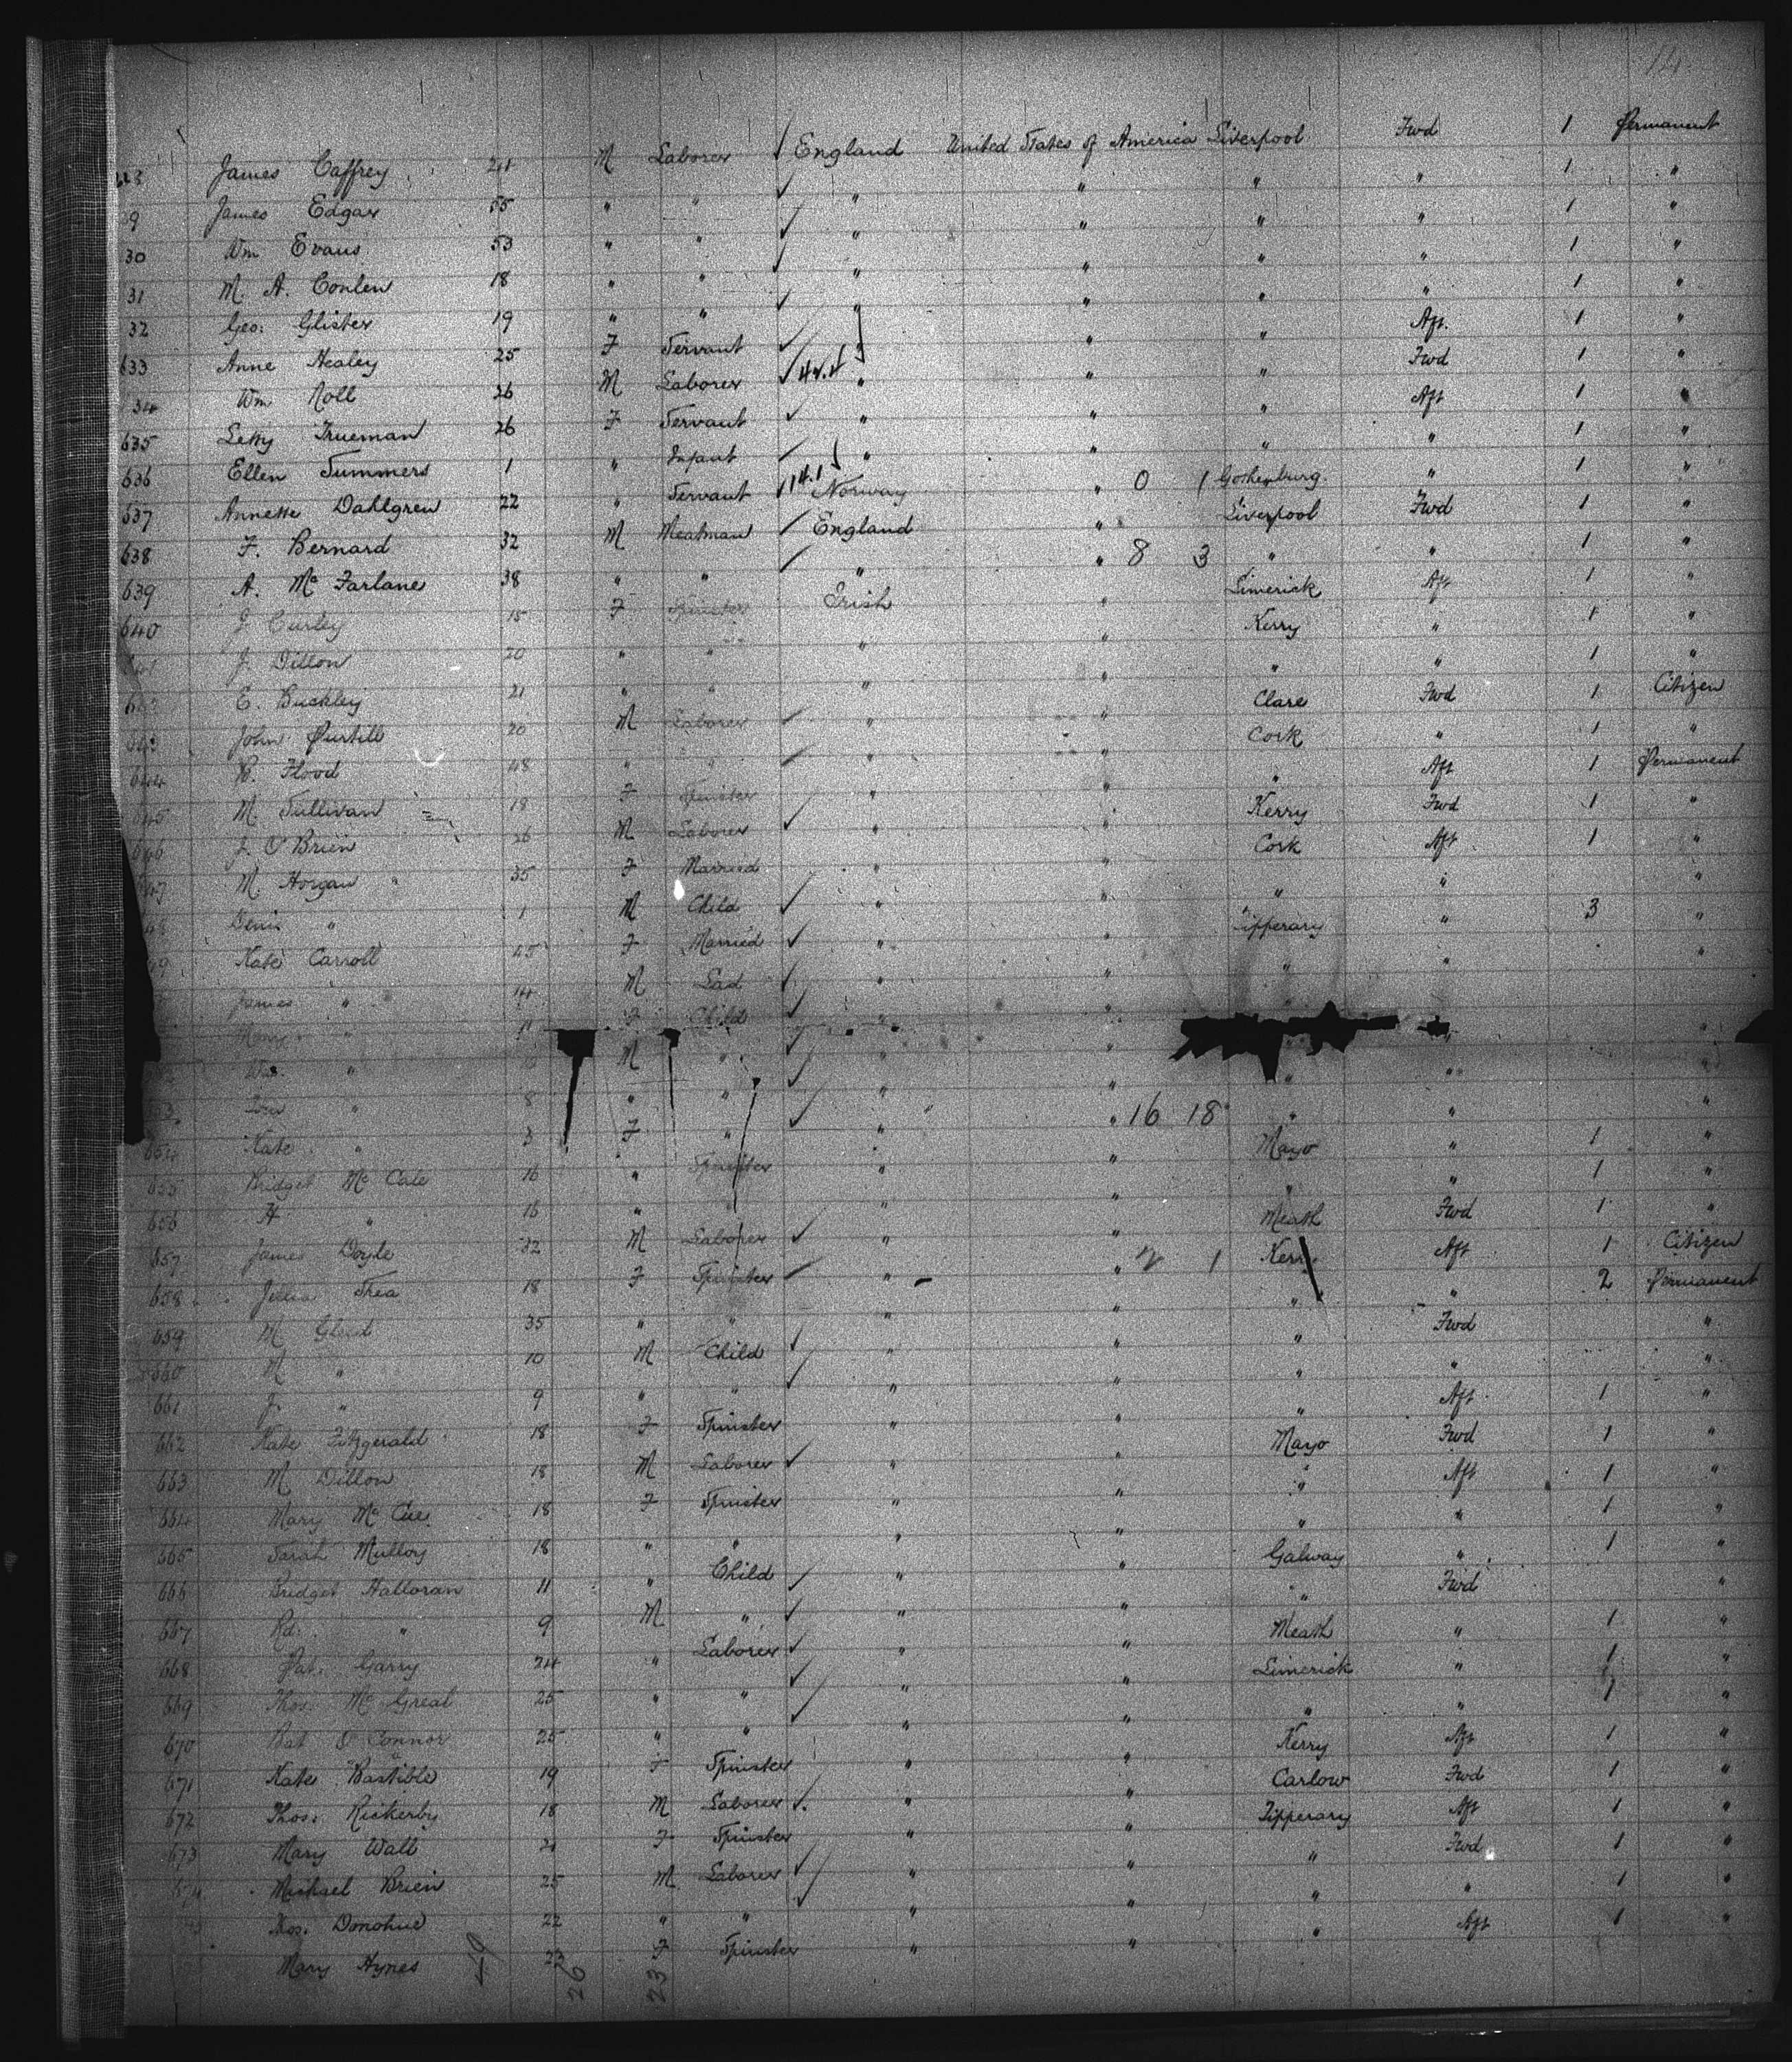 James Caffrey 24 M Laborer England United States of America Liverpool Fwd 1 Permanent
James Edgar 55 " " " " " " 1 "
30 Wm Evans 53 " " " " " " 1 "
31 M. A. Conlen 18 " " " " " " 1 "
32 Geo. Glister 19 " " " " " " 1 "
633 Anne Healey 25 F Servant " " " Aft. 1 "
34 Wm 26 M Laborer " " " Fwd 1 "
635 Trueman 26 F Servant " " " Aft 1 "
636 Ellen Summers 1 " Infant " " " " 1 "
637 Annette Dahlgren 22 " Servant Norway " 0 1 Gothenburg " 1 "
638 F. Bernard 32 M Meatman England " Liverpool Fwd 1 "
639 A. Mc Farlane 38 " " " " 8 3 " " 1 "
640 J. Curley 15 F Spinster Irish " Limerick Aft 1 "
J. Dillon 20 " " " " Kerry " 1 "
E. Buckley 21 " " " " " " 1 "
John Purtill 20 M Laborer " " Clare Fwd 1 Citizen
644 B. Flood 48 " " " " Cork " 1 "
M. Sullivan 18 F Spinster " " " Aft 1 Permanent
J. O'Brien 26 M Laborer " " Kerry Fwd 1 "
M. Horgan 35 F Married " " Cork Aft 1 "
" 1 M Child " " " " "
Kate Carroll 45 F Married " " Tipperary " 3 "
James " 14 M Lad " " " " "
Mary " 11 F Child " " "
Wm. " M " " " " "
" 8 " " " " " " "
654 Kate " 3 F " " " 16 18 " " "
655 Bridget Mc Cale 16 " Spinster " " Mayo " 1 "
656 H " 16 " " " " " " 1 "
657 James Doyle 32 M Laborer " " Meath Fwd 1 "
658 Julia Shea 18 F Spinster " " 2 1 Kerry Aft 1 Citizen
659 M 35 " " " " " " 2 Permanent
660 M " 10 M Child " " " Fwd "
661 J. " 9 " " " " " " "
662 Kate Fitzgerald 18 F Spinster " " " Aft 1 "
663 M Dillon 18 M Laborer " " Mayo Fwd 1 "
664 Mary Mc Cue 18 F Spinster " " " Aft 1 "
665 Sarah Mulloy 18 " " " " " " 1 "
666 Bridget Halloran 11 " Child " " Galway " 1 "
667 Rd. " 9 M " " " " Fwd "
668 Pat. Garry 24 " Laborer " " Meath " 1 "
669 Thos. Mc Greal 25 " " " " Limerick " 1 "
670 Pat O'Connor 25 " " " " " " 1 "
671 Kate Bastible 19 F Spinster " " Kerry Aft 1 "
672 Thos. Rickerby 18 M Laborer " " Carlow Fwd 1 "
673 Mary Wall 21 F Spinster " " Tipperary Aft 1 "
Michael Brien 25 M Laborer " " " Fwd 1 "
Thos. Donohue 22 " " " " " " 1 "
Mary Hynes 23 F Spinster " " " Aft 1 "
26 23